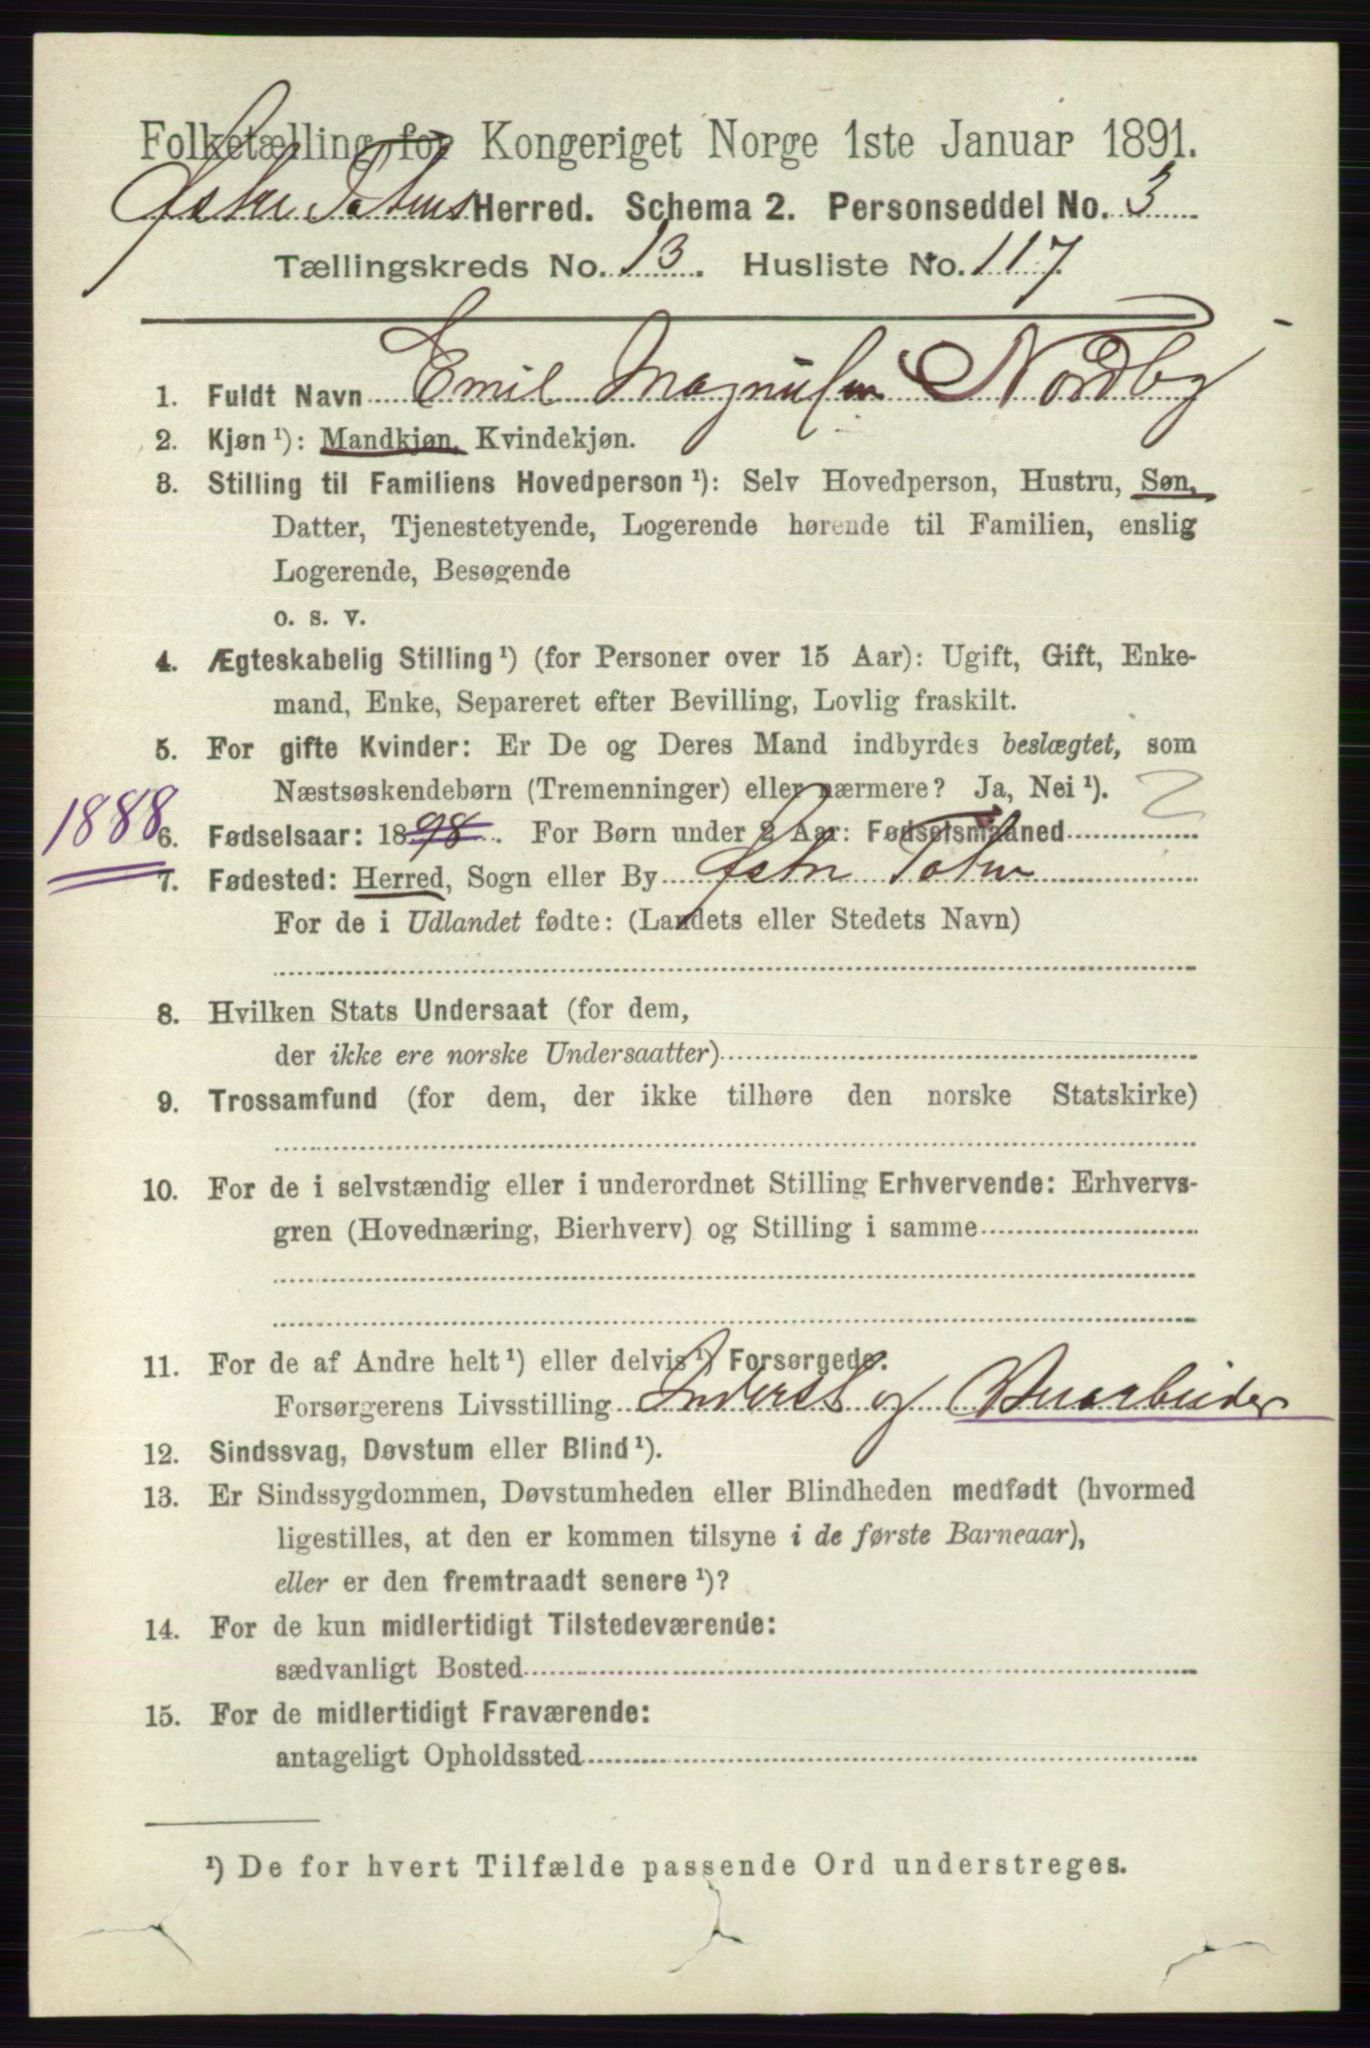 Folketælling for Kongeriget Norge 1ste Januar 1891.
Østre Totens Herred. Schema 2. Personseddel No. 3
Tællingskreds No. 13. Husliste No. 117.
1. Fuldt Navn Emil Magnusen Nordby
2. Kjøn ¹): Mandkjøn, Kvindekjøn.
3. Stilling til Familiens Hovedperson ¹): Selv Hovedperson, Hustru, Søn,
Datter, Tjenestetyende, Logerende hørende til Familien, enslig
Logerende, Besøgende
o. s. v.
4. Ægteskabelig Stilling ¹) (for Personer over 15 Aar): Ugift, Gift, Enke-
mand, Enke, Separeret efter Bevilling, Lovlig fraskilt.
5. For gifte Kvinder: Er De og Deres Mand indbyrdes beslægtet, som
Næstsøskendebørn (Tremenninger) eller nærmere? Ja, Nei ¹). 2
1888 6. Fødselsaar: 1898. For Børn under 2 Aar: Fødselsmaaned
7. Fødested: Herred, Sogn eller By Østre Toten
For de i Udlandet fødte: (Landets eller Stedets Navn)
8. Hvilken Stats Undersaat (for dem,
der ikke ere norske Undersaatter)
9. Trossamfund (for dem, der ikke tilhøre den norske Statskirke)
10. For de i selvstændig eller i underordnet Stilling Erhvervende: Erhvervs-
gren (Hovednæring, Bierhverv) og Stilling i samme
11. For de af Andre helt ¹) eller delvis ¹) Forsørgede.
Forsørgerens Livsstilling Inderst og
12. Sindssvag, Døvstum eller Blind ¹).
13. Er Sindssygdommen, Døvstumheden eller Blindheden medfødt (hvormed
ligestilles, at den er kommen tilsyne i de første Barneaar),
eller er den fremtraadt senere ¹)?
14. For de kun midlertidigt Tilstedeværende:
sædvanligt Bosted
15. For de midlertidigt Fraværende:
antageligt Opholdssted
¹) De for hvert Tilfælde passende Ord understreges.